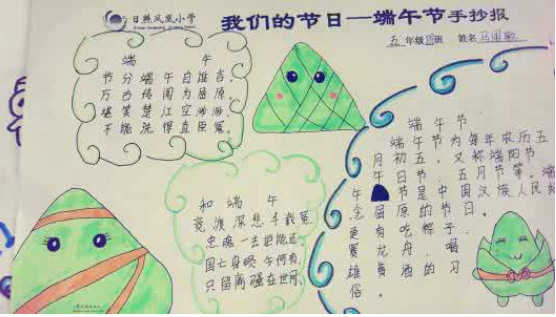 日照凤凰小学
我们的节日—端午节手抄报
五年级 班 姓名
端午
节分端午自谁言，
万古传闻为屈原。
堪笑楚江空渺渺，
不能洗得直臣冤。
和端午
竞渡深悲千载冤，
忠魂一去讵能还。
国亡身殒今何有，
只留离骚在世间。
端午节
端午节为每年农历五
月初五，又称端阳节、
午日节、五月节等。端
午节是中国汉族人民纪
念屈原的节日。
更有吃粽子，
赛龙舟，喝
雄黄酒的习
俗。